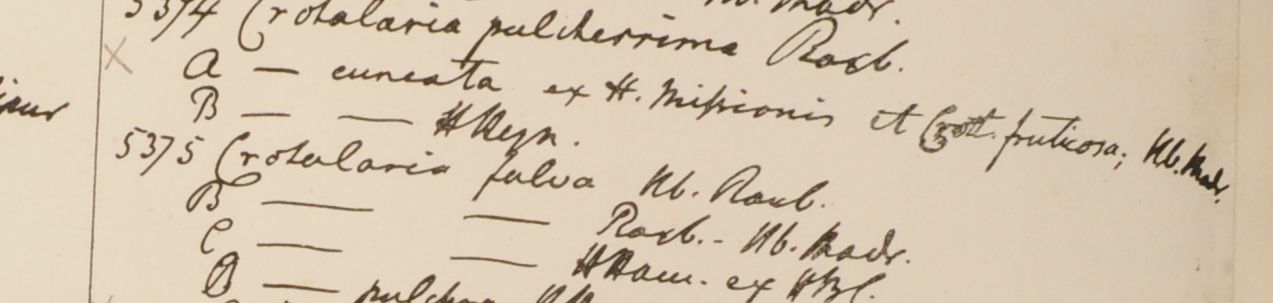 Hb. Madr.
5374 Crotalaria pulcherrima Roxb.
A — cuneata ex H. Missionis et Crot. fruticosa; Hb. Madr.
B — — HHeyn.
5375 Crotalaria fulva Hb. Roxb.
B — — Roxb. - Hb. Madr.
C — — HHam. ex HBC.
D —